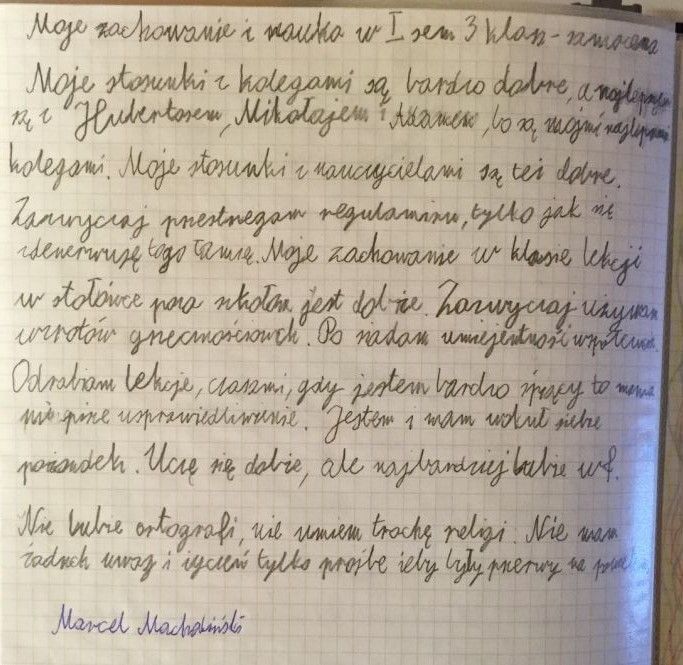 Moje zachowanie i nauka w I sem 3 klas - samocena
Moje stosunki z kolegami są bardzo dobre, a najlepsze
są z Hubertosem, Mikołajem i Adamem, bo są mojmi najlepszmi
kolegami. Moje stosunki z nauczycielami są też dobre.
Zazwyczaj przestrzegam regulaminu, tylko jak się
zdenerwuję to go łamię. Moje zachowanie w klasie lekcji
w stołówce poza szkołom jest dobrze. Zazwyczaj używam
wzrotów grzecznościowch. Po siadam umiejentność
Odrabiam lekcje, czaszmi, gdy jestem bardzo śpiący to mama
mi pisze usprawiedliwienie. Jestem i mam wokuł siebie
pożondek. Uczę się dobże, ale najbardziej lubie wf.
Nie lubie ortografi, nie umiem trochę religi. Nie mam
żadnch uwag i życzeń tylko prośbe żeby były przerwy na
Marcel